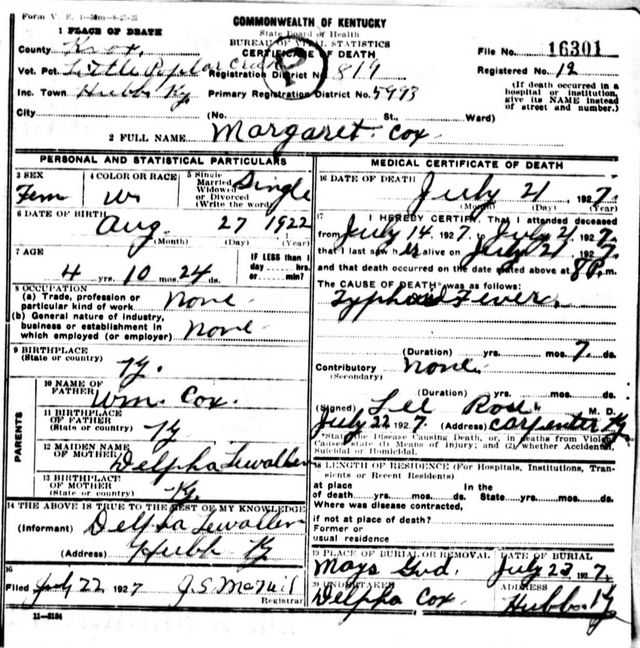 Form V. S. 1-50m-8-27-25
COMMONWEALTH OF KENTUCKY
State Board of Health
BUREAU OF VITAL STATISTICS
CERTIFICATE OF DEATH
1 PLACE OF DEATH
County Knox.
Vot. Pct. Little Poplar Creek
Inc. Town Hubbs Ky
City
P
Registration District No. 819
Primary Registration District No. 5993
(No. St., Ward)
File No. 16301
Registered No. 12
(If death occurred in a
hospital or institution,
give its NAME instead
of street and number.)
2 FULL NAME Margaret Cox
PERSONAL AND STATISTICAL PARTICULARS
3 SEX
Fem
4 COLOR OR RACE
W
5 Single
Married
Widowed
or Divorced
(Write the word)
Single
6 DATE OF BIRTH
Aug. 27 1922
(Month) (Day) (Year)
7 AGE
4 yrs. 10 mos. 24 ds.
IF LESS than
1 day hrs.
or min?
8 OCCUPATION
(a) Trade, profession or
particular kind of work None
(b) General nature of industry,
business or establishment in
which employed (or employer) None
9 BIRTHPLACE
(State or country) Ky.
PARENTS
10 NAME OF
FATHER Wm. Cox.
11 BIRTHPLACE
OF FATHER
(State or country) Ky
12 MAIDEN NAME
OF MOTHER Delpha Lewallen
13 BIRTHPLACE
OF MOTHER
(State or country) Ky.
14 THE ABOVE IS TRUE TO THE BEST OF MY KNOWLEDGE
(Informant) Delpha Lewallen
(Address) Hubb Ky
15
Filed July 22 1927 J.S. McNeil
Registrar
11-3184
MEDICAL CERTIFICATE OF DEATH
16 DATE OF DEATH July 21, 1927.
(Month) (Day) (Year)
17 I HEREBY CERTIFY, That I attended deceased
from July 14 1927, to July 21 1927,
that I last saw her alive on July 21, 1927,
and that death occurred on the date stated above at 8 P.m.
The CAUSE OF DEATH* was as follows:
Typhoid Fever,
(Duration) yrs. mos. 7 ds.
Contributory None.
(Secondary)
(Duration) yrs. mos. ds.
(Signed) Lee Rose M. D.
July 22 1927. (Address) Carpenter Ky
*State the Disease Causing Death, or, in deaths from Violent
Causes state (1) Means of Injury; and (2) whether Accidental,
Suicidal or Homicidal.
18 LENGTH OF RESIDENCE (For Hospitals, Institutions, Transients
or Recent Residents)
at place In the
of death yrs. mos. ds. State yrs. mos. ds.
Where was disease contracted,
if not at place of death?
Former or
usual residence
19 PLACE OF BURIAL OR REMOVAL
Mays Gvd.
DATE OF BURIAL
July 23 1927.
20 UNDERTAKER
Delpha Cox
ADDRESS
Hubbs. Ky